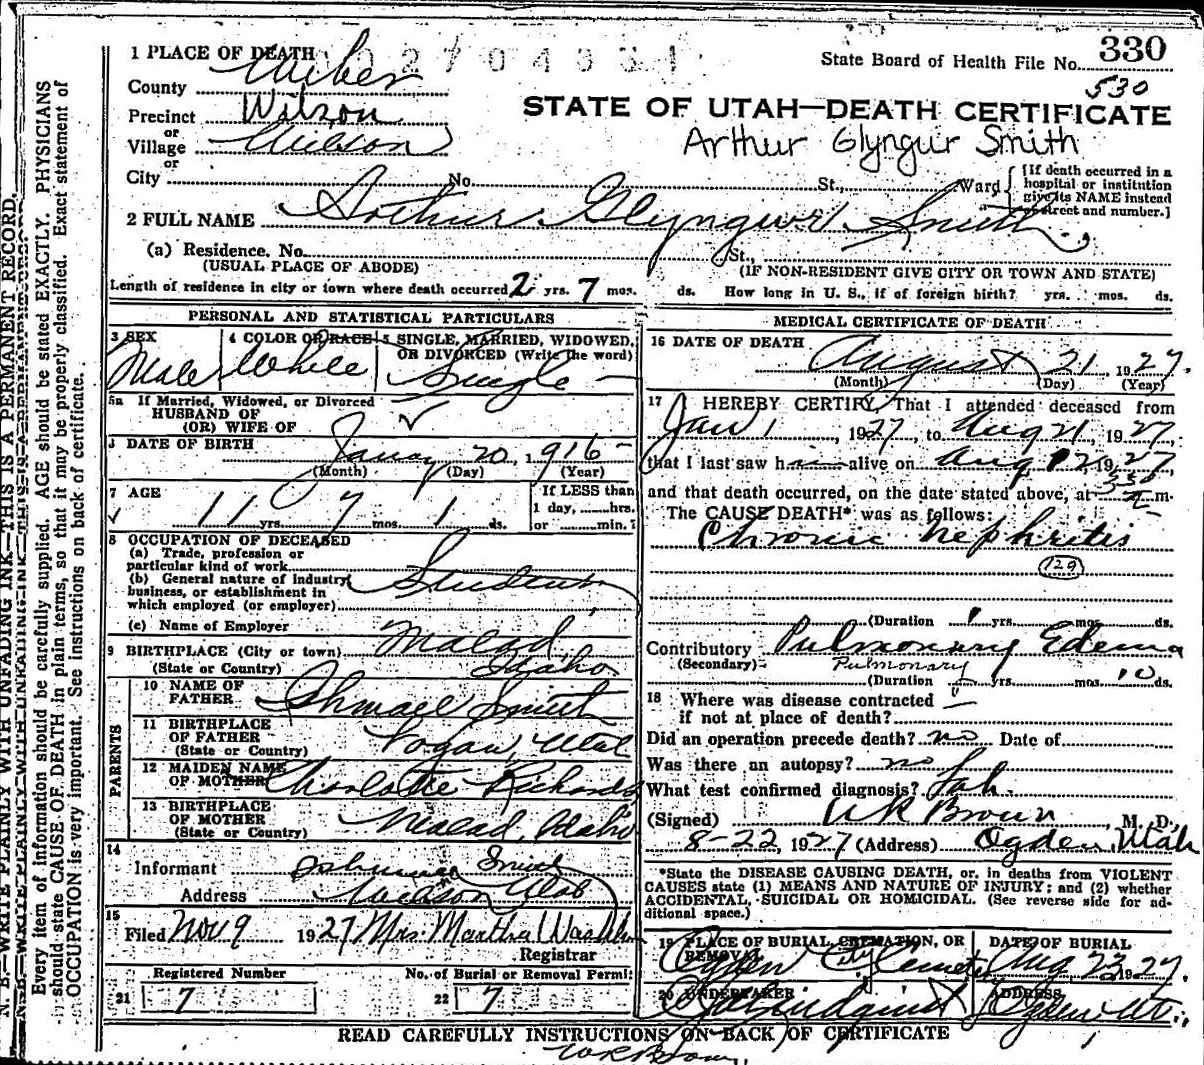 N. B.—WRITE PLAINLY WITH UNFADING INK—THIS IS A PERMANENT RECORD.
Every item of information should be carefully supplied. AGE should be stated EXACTLY. PHYSICIANS
should state CAUSE OF DEATH in plain terms, so that it may be properly classified. Exact statement of
OCCUPATION is very important. See instructions on back of certificate.
State Board of Health File No. 330
530
STATE OF UTAH—DEATH CERTIFICATE
Arthur Glyngur Smith
1 PLACE OF DEATH
County Weber
Precinct Wilson
or
Village Wilson
or
City No. St., Ward
[If death occurred in a
hospital or institution
give its NAME instead
of street and number.]
2 FULL NAME Arthur Glyngwr Smith
(a) Residence. No. St.,
(USUAL PLACE OF ABODE) (IF NON-RESIDENT GIVE CITY OR TOWN AND STATE)
Length of residence in city or town where death occurred 2 yrs. 7 mos. ds. How long in U. S., if of foreign birth? yrs. mos. ds.
PERSONAL AND STATISTICAL PARTICULARS
3 SEX Male
4 COLOR OR RACE White
5 SINGLE, MARRIED, WIDOWED, OR DIVORCED (Write the word) Single
5a If Married, Widowed, or Divorced
HUSBAND OF
(OR) WIFE OF
DATE OF BIRTH 20, 1916
(Month) (Day) (Year)
7 AGE 11 yrs. 7 mos. 1 ds.
If LESS than
1 day, hrs.
or min.?
8 OCCUPATION OF DECEASED
(a) Trade, profession or
particular kind of work
(b) General nature of industry
business, or establishment in
which employed (or employer) Student
(c) Name of Employer
9 BIRTHPLACE (City or town) Malad
(State or Country) Idaho
PARENTS
10 NAME OF
FATHER Ishmael Smith
11 BIRTHPLACE
OF FATHER
(State or Country) Logan, Utah
12 MAIDEN NAME
OF MOTHER Charlotte Richards
13 BIRTHPLACE
OF MOTHER
(State or Country) Malad, Idaho
14
Informant Smith
Address Wilson Utah
15
Filed Nov 9 1927 Mrs. Martha
Registrar
Registered Number
21 7
No. of Burial or Removal Permit
22 7
MEDICAL CERTIFICATE OF DEATH
16 DATE OF DEATH
August 21, 1927.
(Month) (Day) (Year)
17 I HEREBY CERTIFY, That I attended deceased from
Jan 1, 1927, to Aug 21, 1927,
that I last saw him alive on Aug 1927
and that death occurred, on the date stated above, at m.
The CAUSE DEATH* was as follows:
Chronic nephritis
129
(Duration 1 yrs. mos. ds.
Contributory Pulmonary Edema
(Secondary) Pulmonary
(Duration yrs. mos. 10 ds.
18 Where was disease contracted
if not at place of death?
Did an operation precede death? no Date of
Was there an autopsy? no
What test confirmed diagnosis? Lab.
(Signed) W R Brown, M. D.
8-22, 1927 (Address) Ogden, Utah
*State the DISEASE CAUSING DEATH, or, in deaths from VIOLENT
CAUSES state (1) MEANS AND NATURE OF INJURY; and (2) whether
ACCIDENTAL, SUICIDAL OR HOMICIDAL. (See reverse side for ad-
ditional space.)
19 PLACE OF BURIAL, CREMATION, OR
REMOVAL
Ogden City Cemetery
DATE OF BURIAL
Aug 23 1927.
20 UNDERTAKER
Lindquist
ADDRESS
Ogden Ut.
READ CAREFULLY INSTRUCTIONS ON BACK OF CERTIFICATE
W R Brown